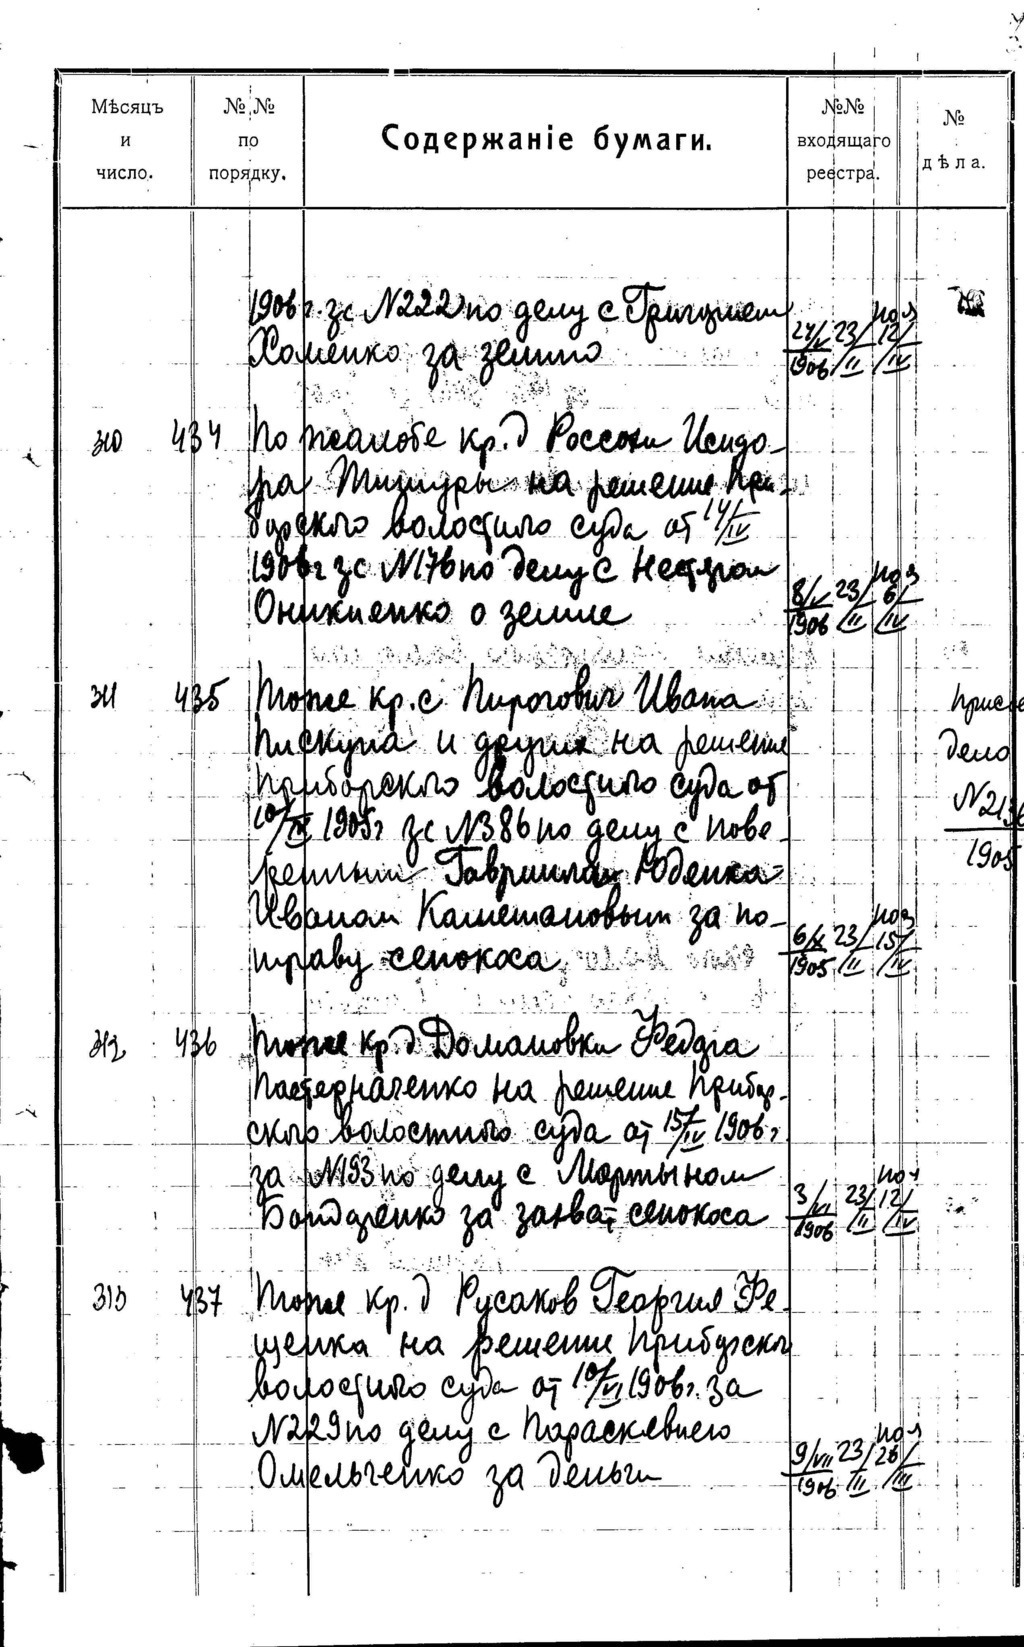 Мѣсяцъ и число.
№№ по порядку.
Содержаніе бумаги.
№№ входящаго реестра.
№ дѣла.
1906 г. за №222 по делу с Григорием
Хоменко за землю
24/V 1906 23/II 12/IV
310 434 По жалобе кр. д Россохи Исидо-
ра Тишуры на решение При-
борского волостного суда от 14/IV
1906 г за №176 по делу с Нестром
Оникиенко о земле
8/V 1906 23/II 6/IV
311 435 Тоже кр. с Пирогович Ивана
Пискуна и других на решение
Приборского волостного суда от
1905 г за №386 по делу с пове-
ренным Гавриилом Юденка
Иваном за по-
траву сенокоса
6/X 1905 23/II 15/IV
дело
№213
1905
312 436 Тоже кр. д Домановки Федора
Пастерначенко на решение Прибор-
ского волостного суда от 15/IV 1906 г
за №193 по делу с Мартыном
Бондаренко за захват сенокоса
3/VI 1906 23/II 12/IV
313 437 Тоже кр. д Русаков Георгия Фе-
щенка на решение Приборского
волостного суда от 10/VI 1906 г. за
№229 по делу с Параскевиею
Омельченко за деньги
9/VII 1906 23/II 26/III